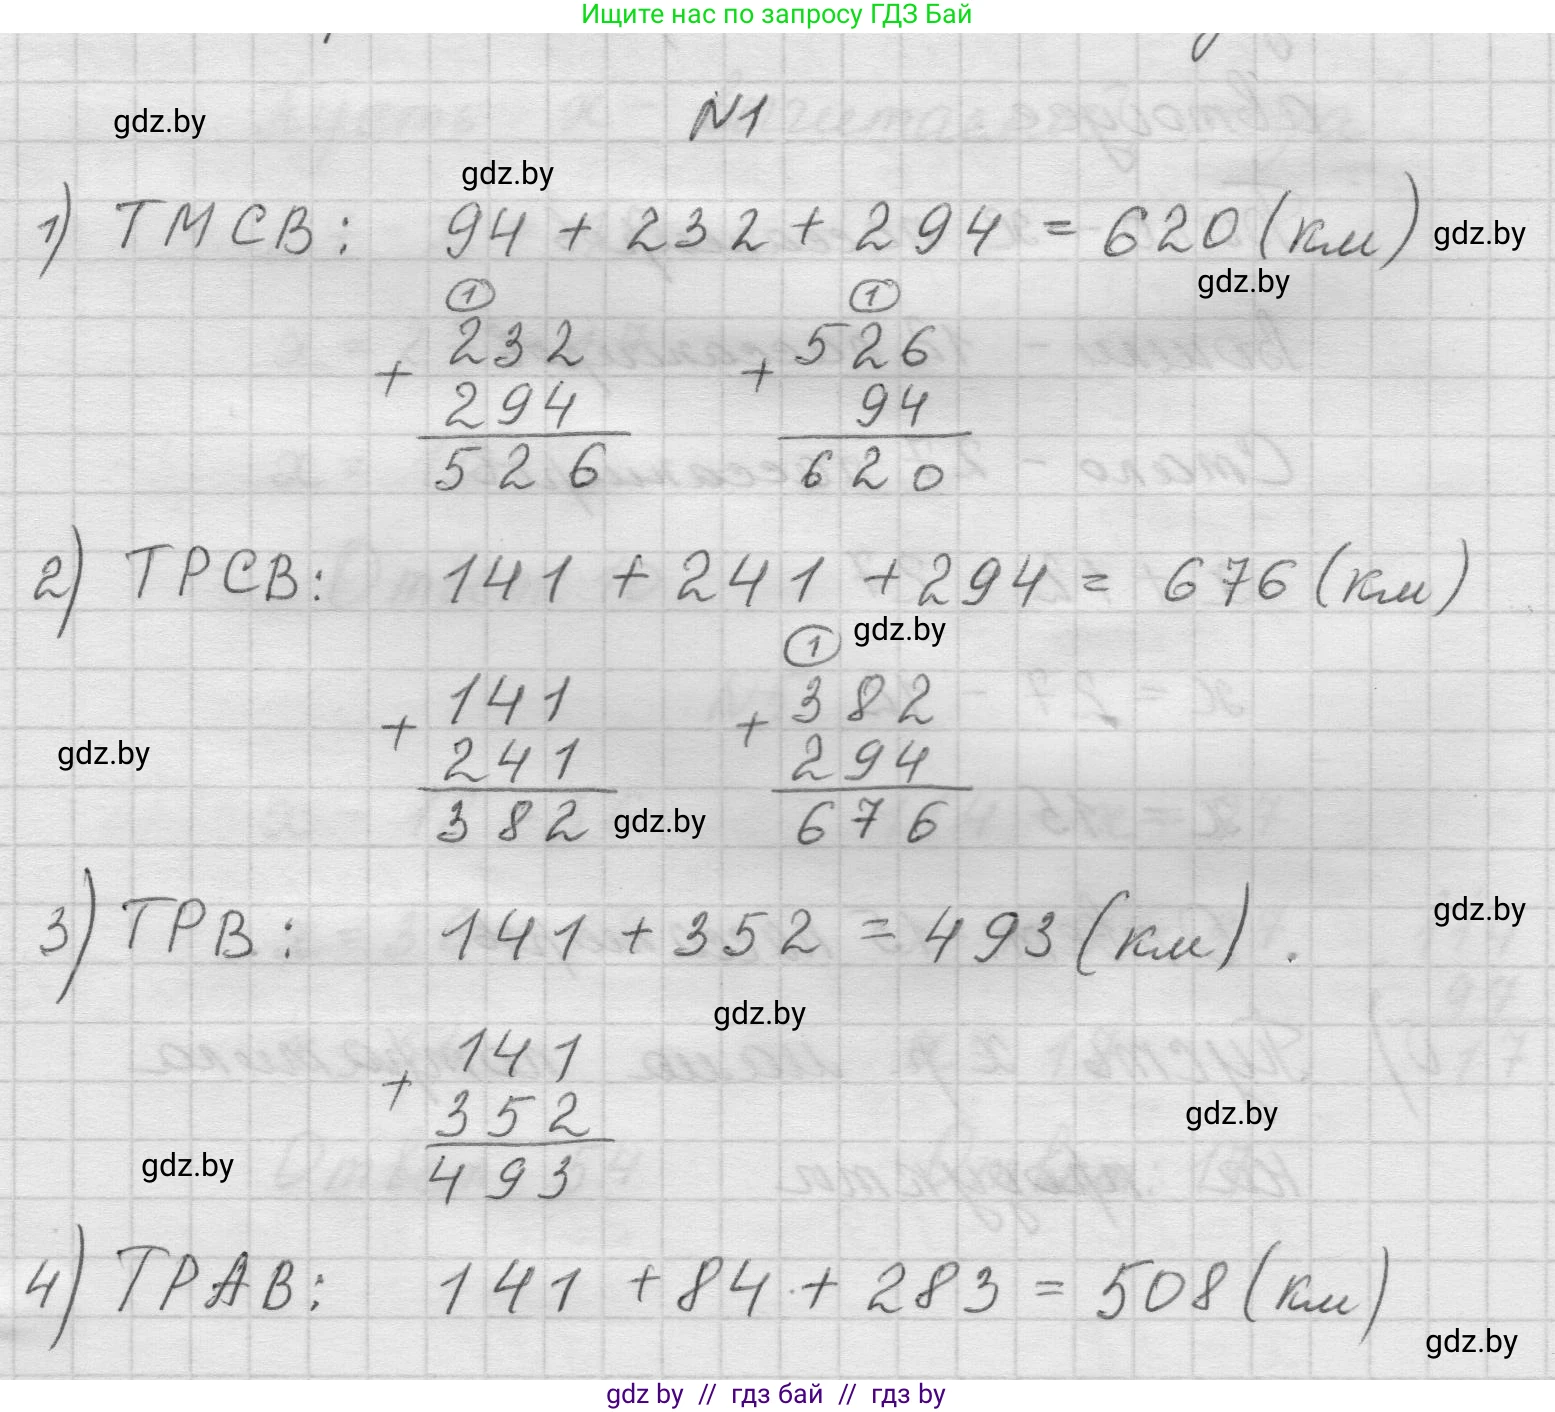 Ищите нас по запросу ГДЗ Бай
gdz.by
N1
gdz.by
1) ТМСВ: 94 + 232 + 294 = 620 (км)
gdz.by
gdz.by
1 1
+ 232 + 526
294 94
526 620
2) ТРСВ: 141 + 241 + 294 = 676 (км)
gdz.by
1
+ 141 + 382
241 294
gdz.by
382 676
gdz.by
3) ТРВ: 141 + 352 = 493 (км).
gdz.by
gdz.by
+ 141
352
493
gdz.by
gdz.by
4) ТРАВ: 141 + 84 + 283 = 508 (км)
gdz.by
gdz by // гдз бай // гдз by